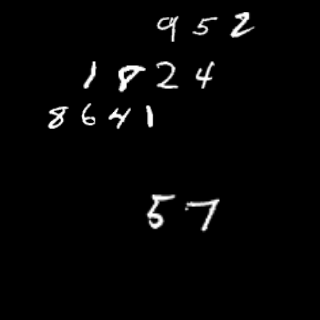 952
1824
8641
57